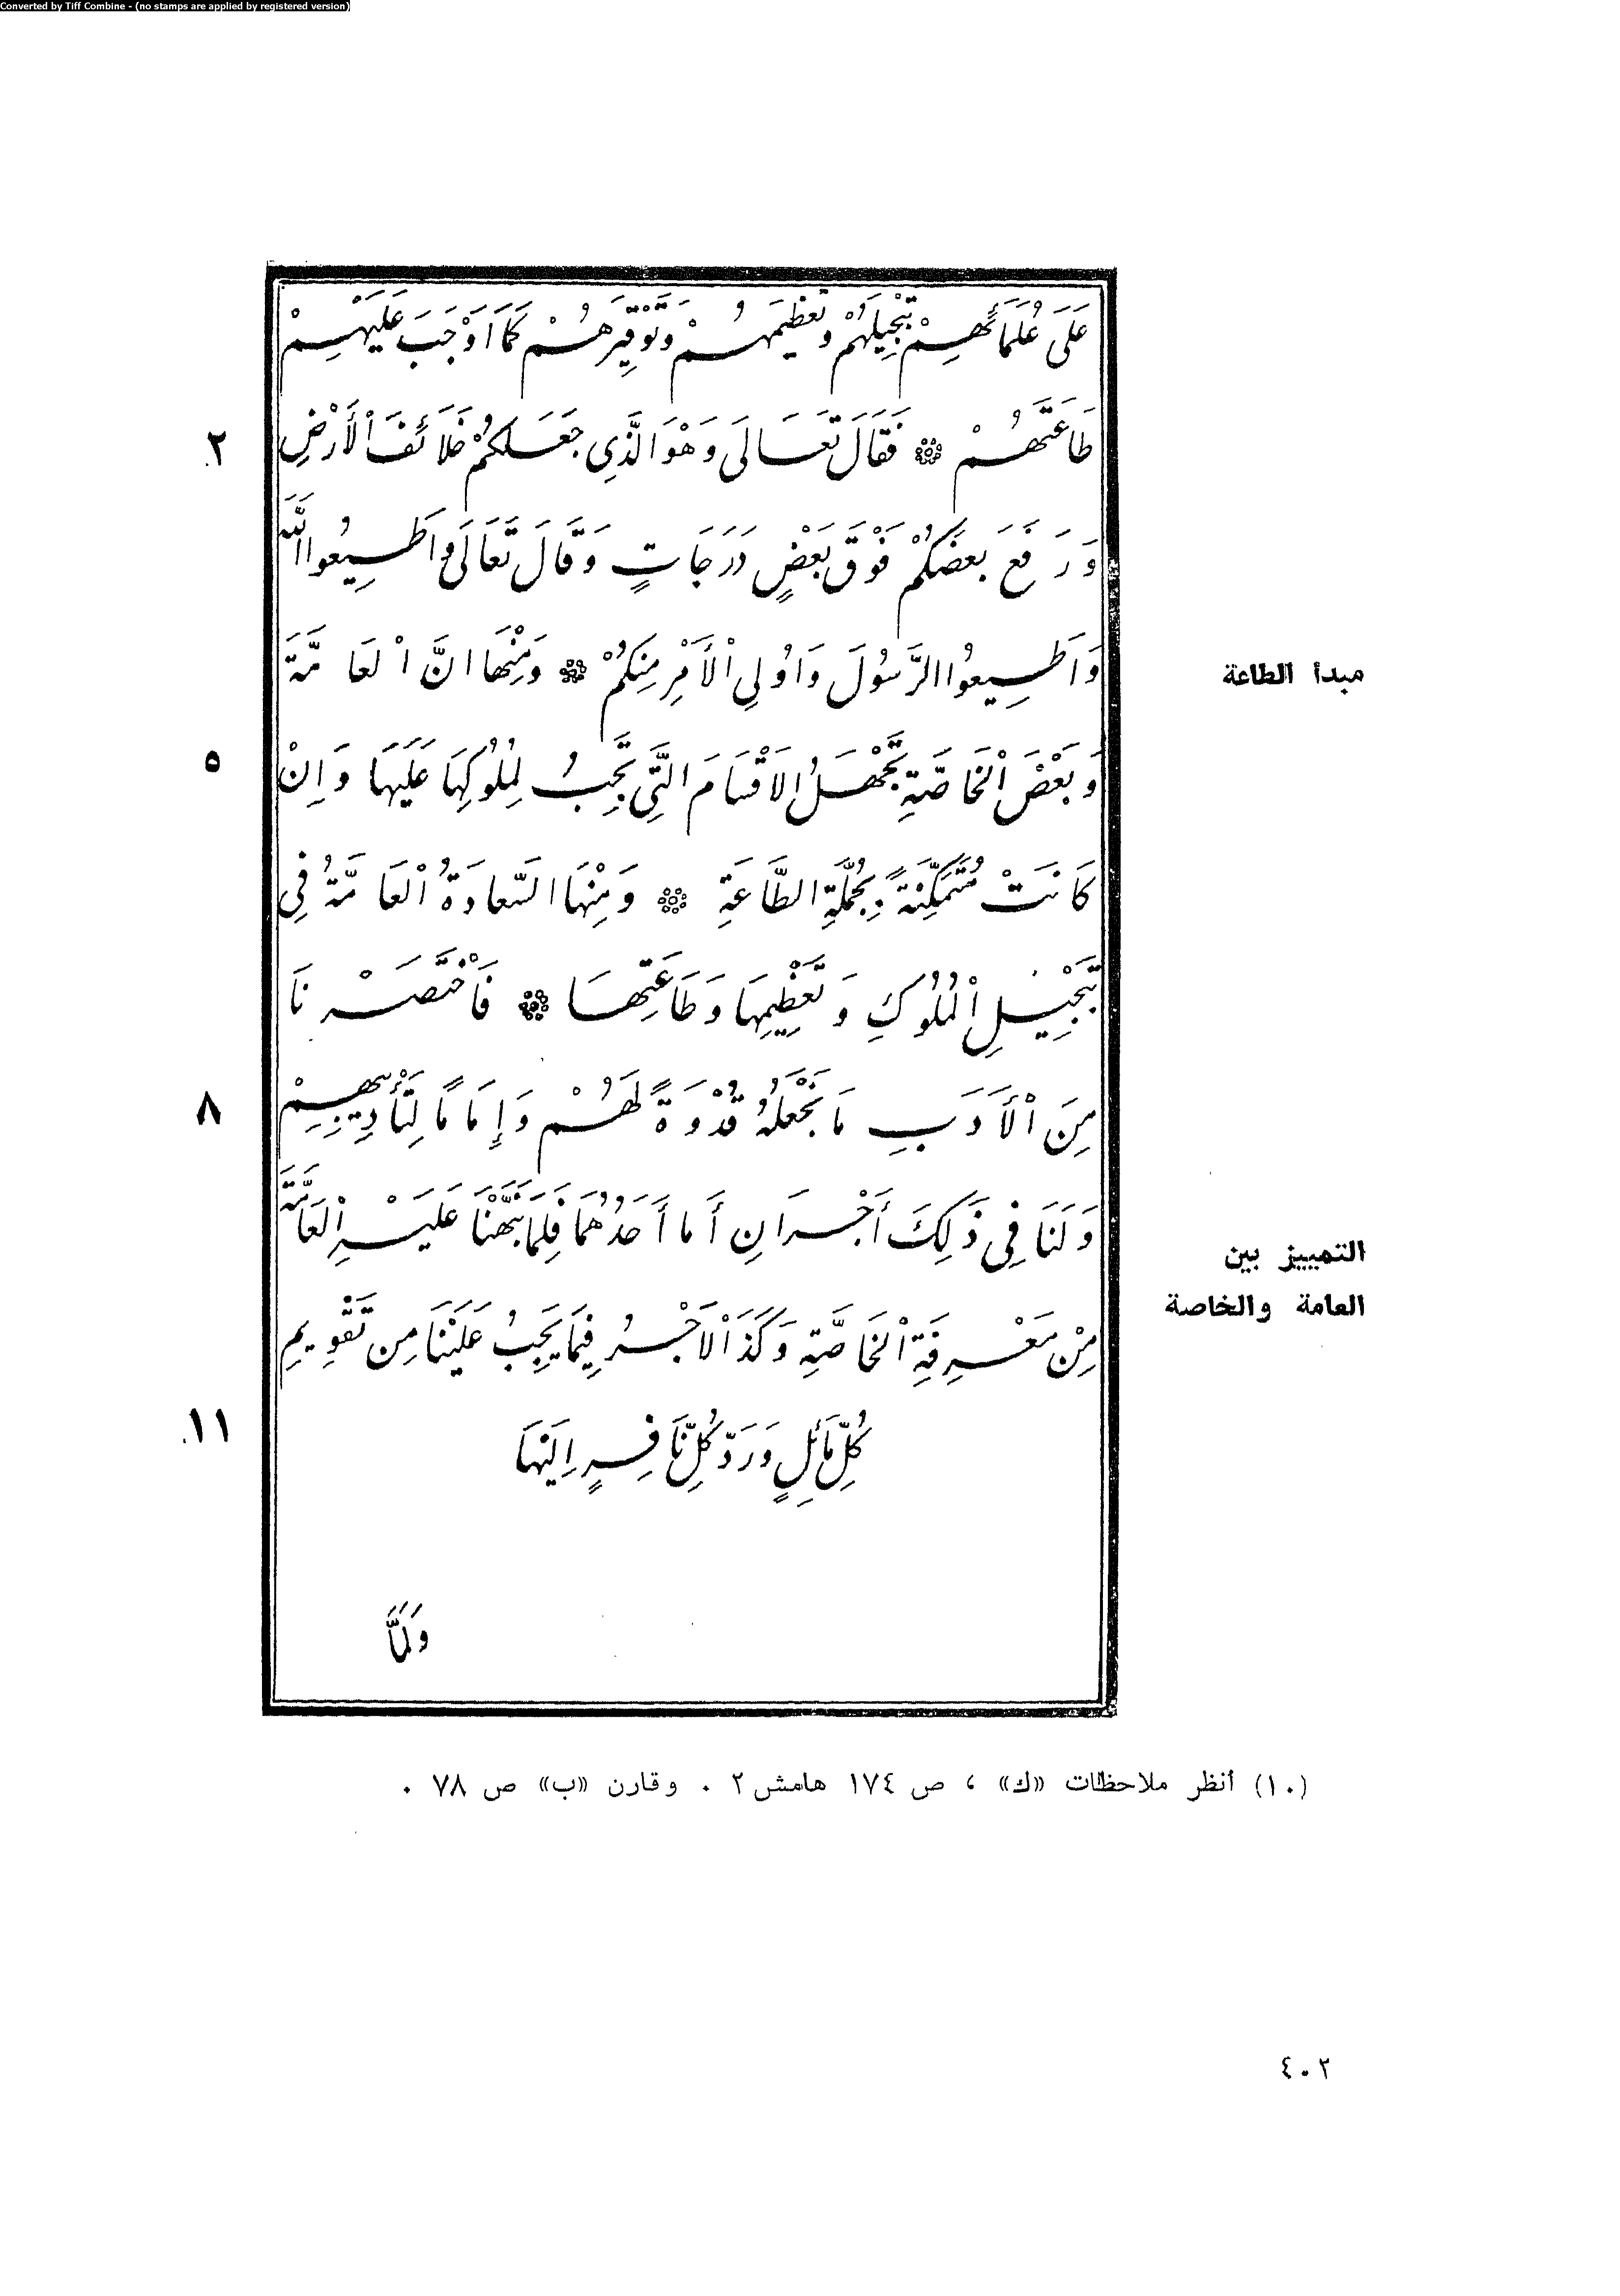 Converted by Tiff Combine - (no stamps are applied by registered version)
عَلَى عُلَمَائِهِمْ تَبْجِيلَهُمْ وَتَعْظِيمَهُمْ وَتَوْقِيَرهُمْ كَمَا اَوْجَبَ عَلَيْهِمْ
٢ طَاعَتَهُمْ ۞ فَقَالَ تَعَالَى وَهْوَ الَّذِى جَعَلَكُمْ خَلَائِفَ اْلأَرْضِ
وَرَفَعَ بعضَكُمْ فَوْقَ بَعْضٍ دَرَجَاتٍ وَقَالَ تَعَالَى وَاَطِيعُوا اللَّهَ
وَاَطِيعُوا الرَّسُولَ وَاُولِى اْلأَمْرِ مِنكُمْ ۞ وَمِنْهَا انَّ اْلعَامَّةَ
مبدأ الطاعة
٥ وَبَعْضَ اْلخَاصَّةِ تَجْهَلُ الاَقْسَامَ الَّتِى تَجِبُ لِمُلُوكِهَا عَلَيهَا وَاِنْ
كَانَتْ مُتَمَكِّنَةً بِجُمْلَةِ الطَّاعَةِ ۞ وَمِنْهَا السَّعادَةُ اْلعَامَّةُ فِى
تَبْجِيلِ اْلمُلُوكِ وَتَعْظِيمِهَا وَطَاعَتِهَا ۞ فَاْختَصَرْنَا
٨ مِنَ اْلأَدَبِ مَا نَجْعَلهُ قُدْوَةً لَهُمْ وَإِمَامًا لِتَأْدِيبِهِمْ
وَلَنَا فِى ذَلِكَ أَجْرَانِ أَما أَحَدُهُمَا فَلِمَا نَبَّهْنَا عَلَيْهِ اْلعَامَّةَ
التمييز بين
العامة والخاصة
مِنْ مَعْرِفَةِ اْلخَاصَّةِ وَكَذَ اْلاَجْرُ فِيَما يَجِبُ عَلَيْنَا مِن تَقْوِيمِ
١١ كُلِّ مَائِلٍ وَرَدِّ كُلِّ نَافِرٍ اِلَيْهَا
وَلَمَّا
(١٠) أنظر ملاحظات «ك» ، ص ١٧٤ هامش ٢ . وقارن «ب» ص ٧٨ .
٤٠٢